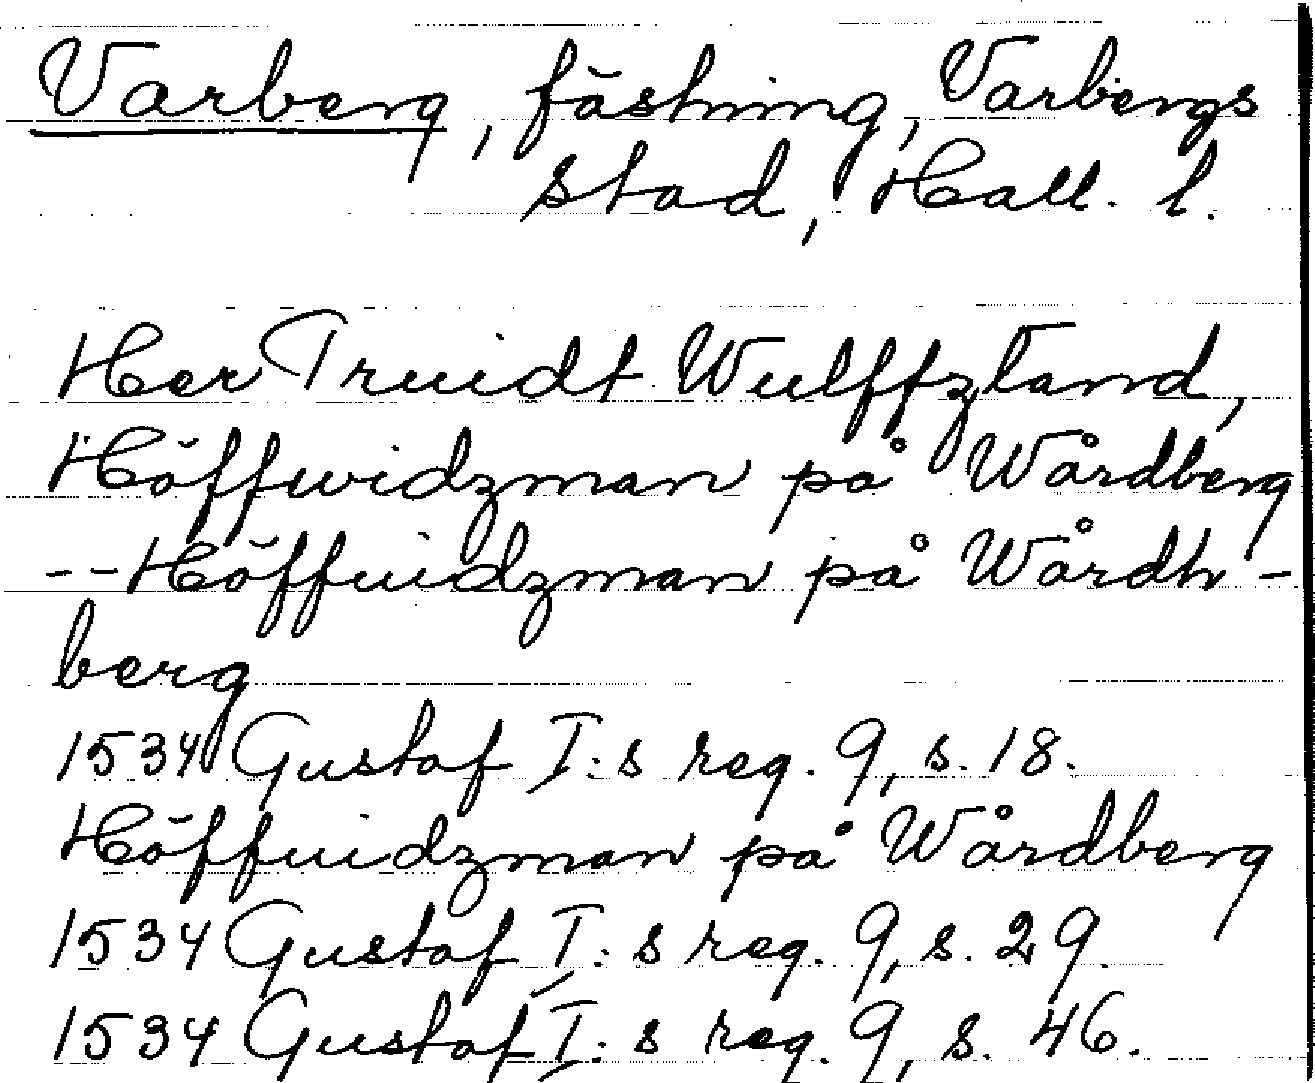 Varberg, fästning, Varbergs
stad, Hall. l.
Her Truidt Wulffztand,
Höffwidzman på Wårdberg
-- Höffuidzman på Wårdh-
berg
1534 Gustaf I:s reg. 9, s. 18.
Höffuidzman på Wårdberg
1534 Gustaf I:s reg. 9, s. 29.
1534 Gustaf I:s reg. 9, s. 46.